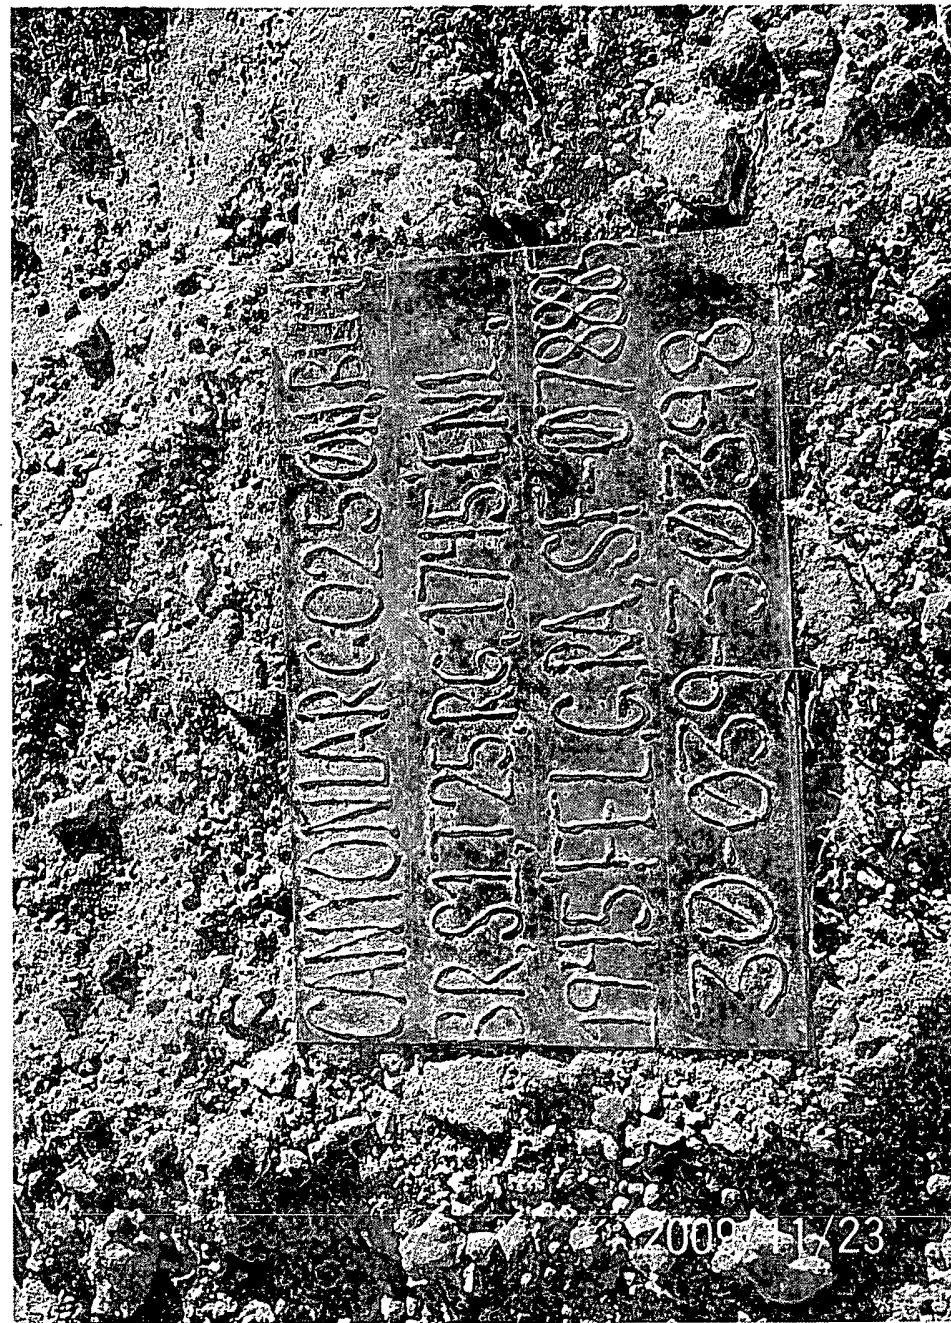 CANYONLARGO250N,
BR,S1,T25,R6,1745FNL,
1945FEL,C,RA,SF-078885
30-039-30398
2009/11/23